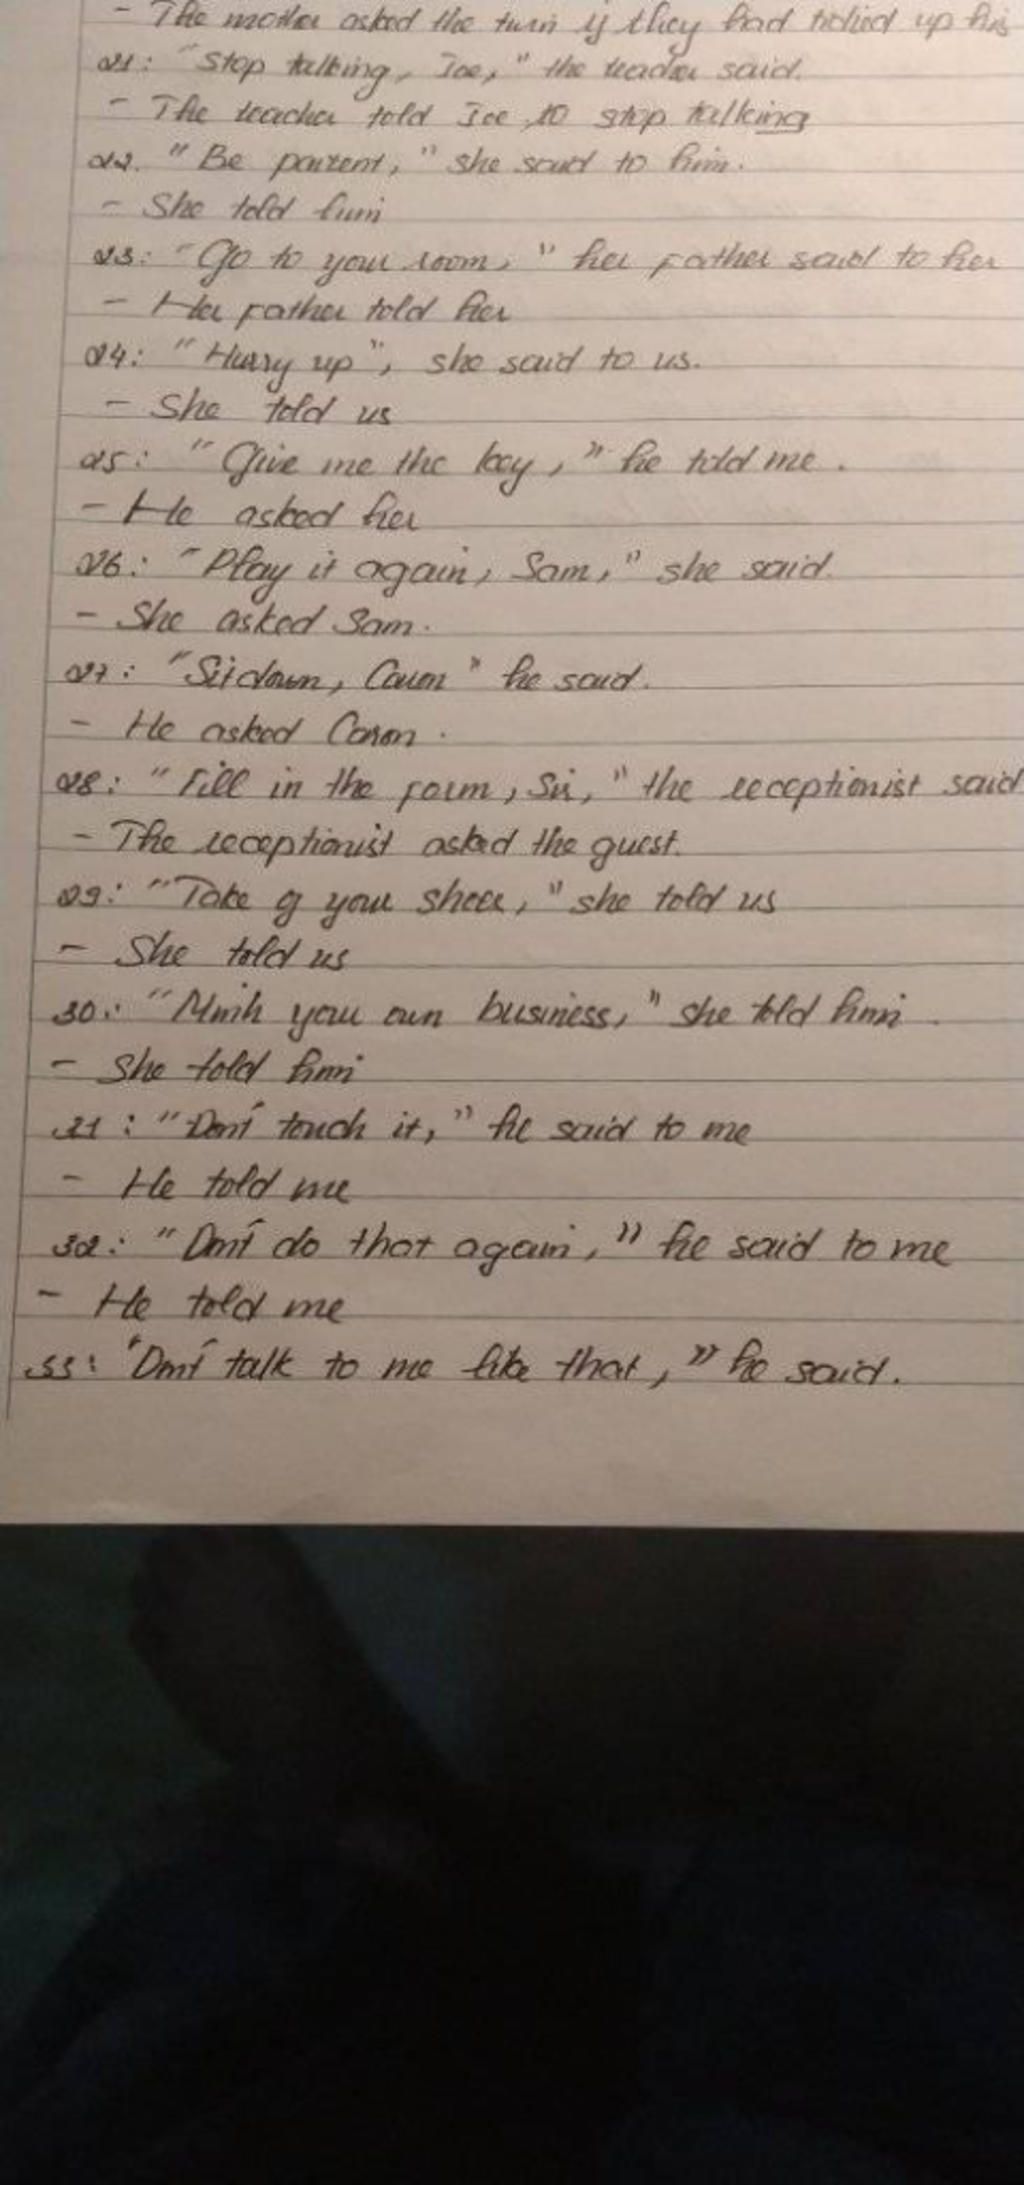 - The mother asked the twin if they had tidied up his
21: "Stop talking, Joe," the teacher said.
- The teacher told Joe to stop talking
22. "Be patient," she said to him.
- She told him
23: "Go to your room," her father said to her
- Her father told her
24: "Hurry up", she said to us.
- She told us
25: "Give me the key," he told me.
- He asked her
26: "Play it again, Sam," she said.
- She asked Sam.
27: "Sit down, Caron" he said.
- He asked Caron.
28: "Fill in the form, Sir," the receptionist said
- The receptionist asked the guest.
29: "Take off your shoes," she told us
- She told us
30: "Minh your own business," she told him.
- She told him
31: "Don't touch it," he said to me
- He told me
32: "Don't do that again," he said to me
- He told me
33: "Don't talk to me like that," he said.